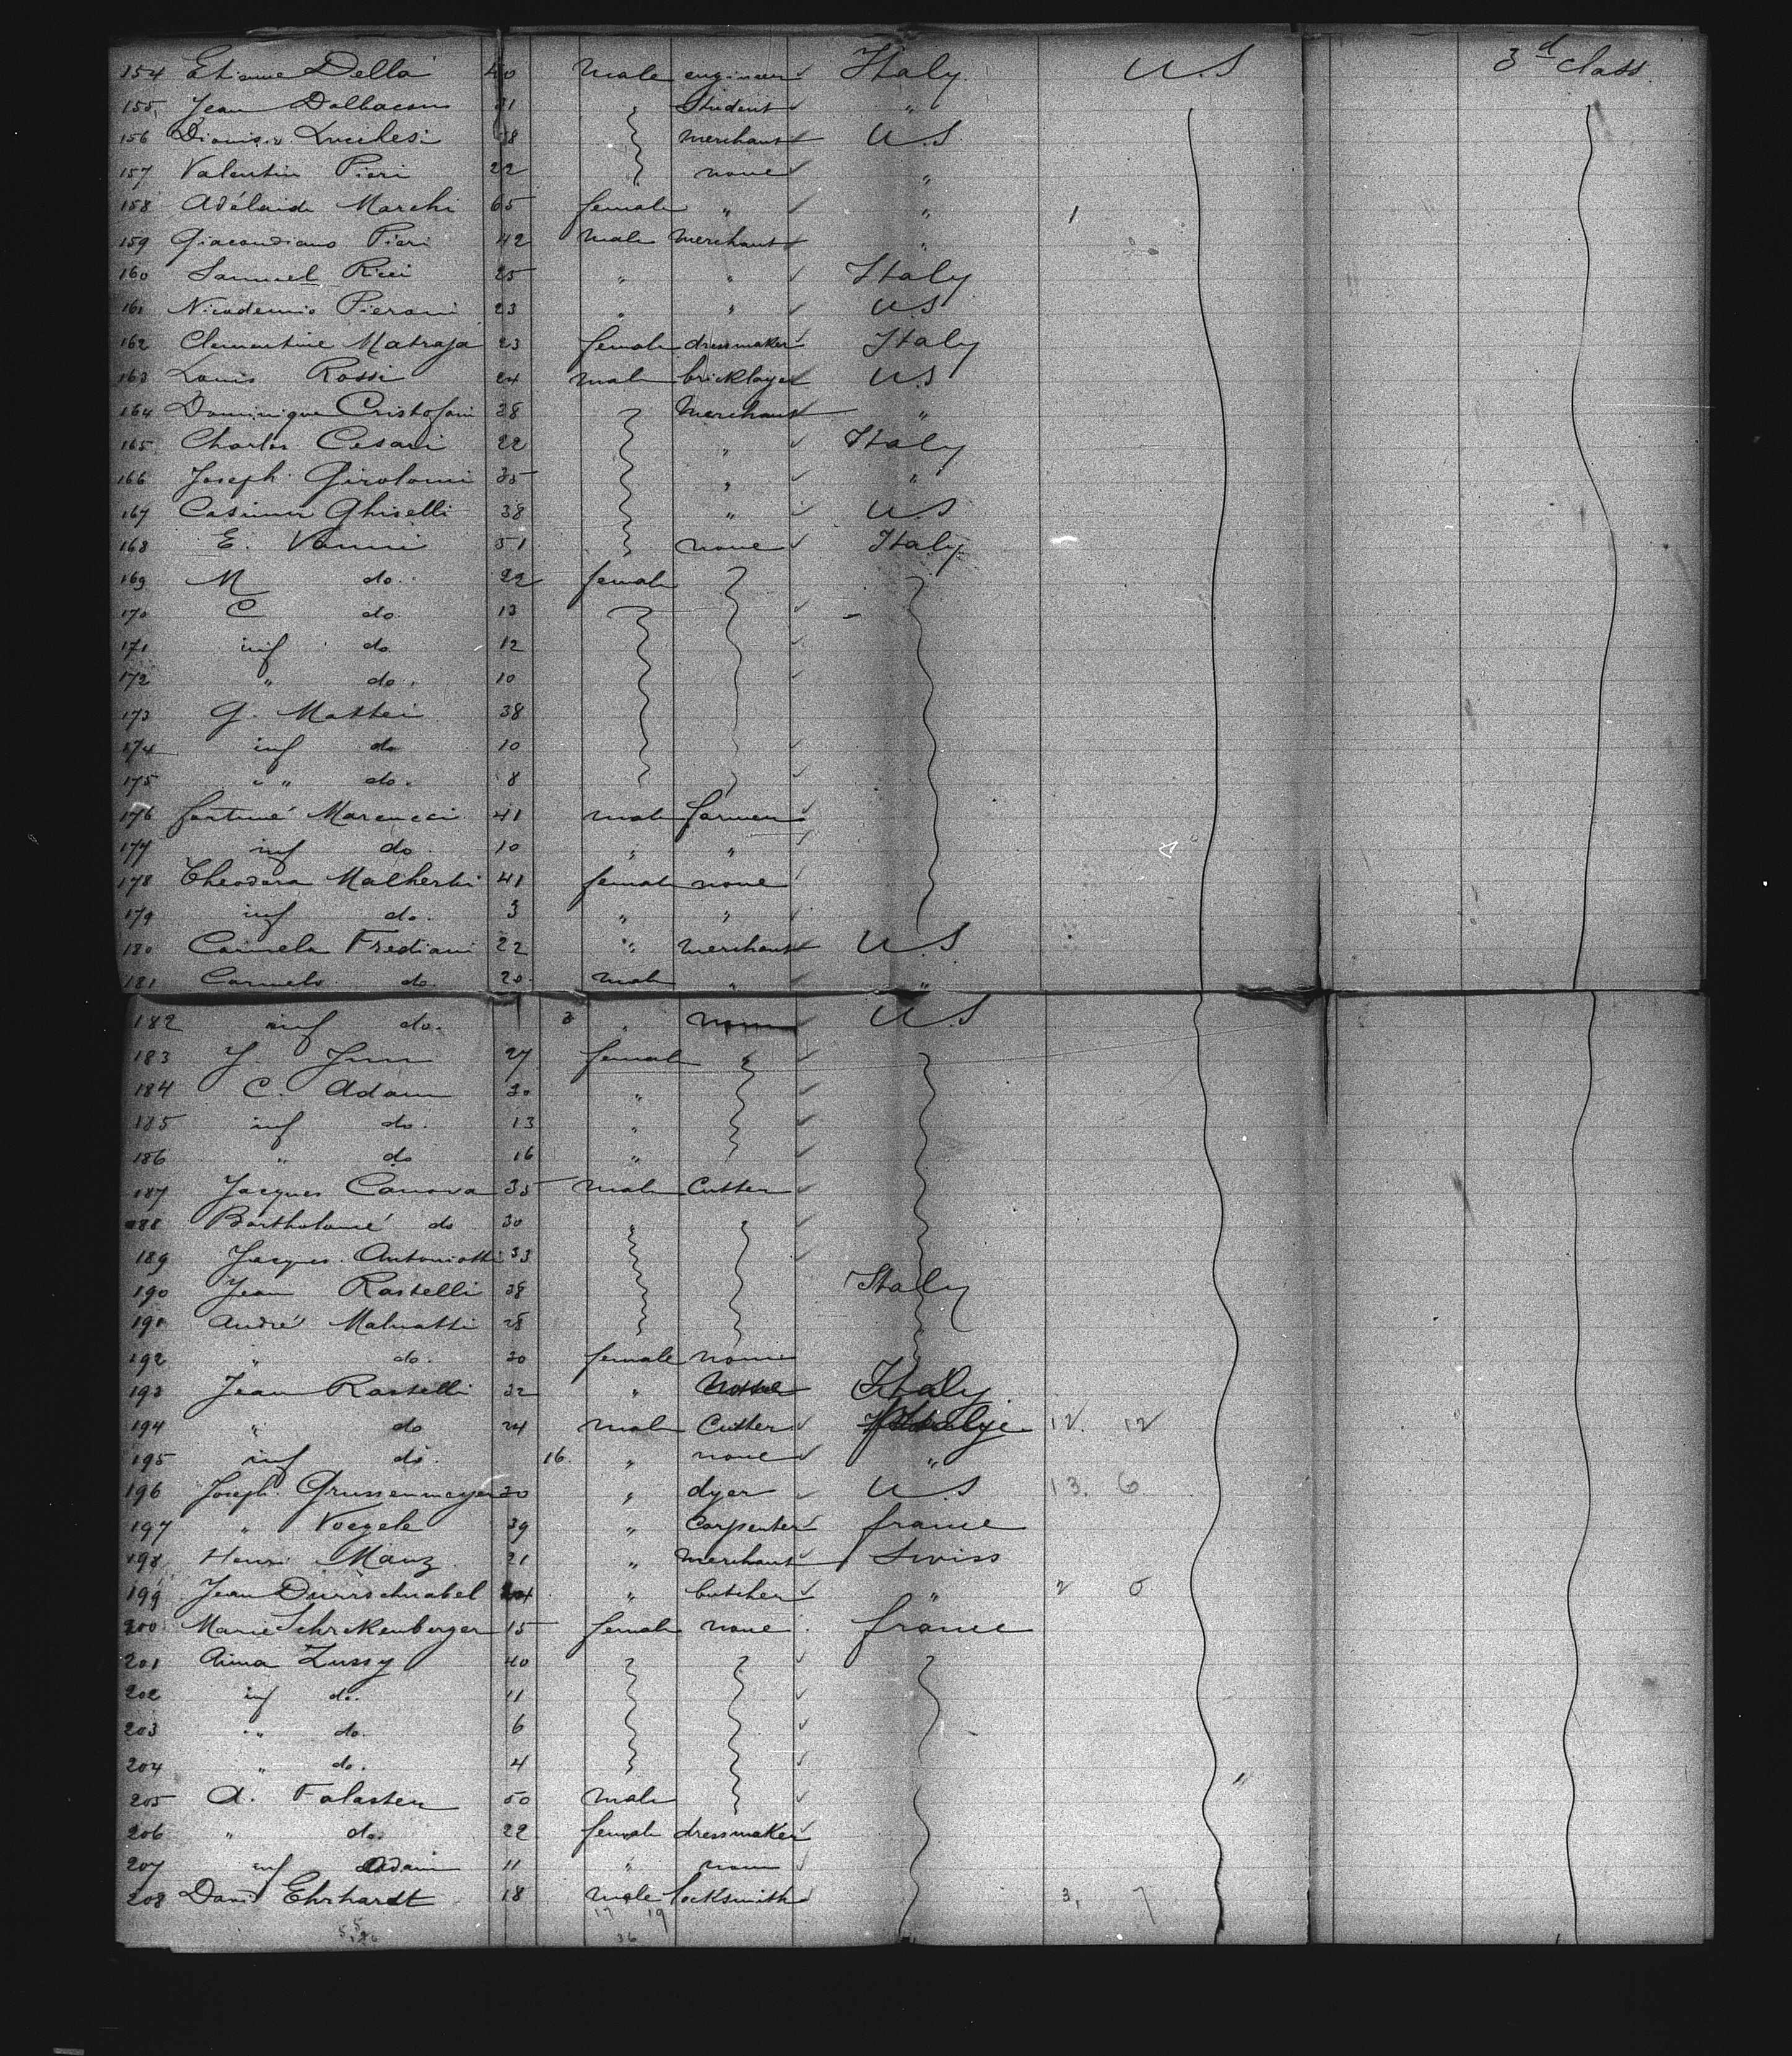 154 Etienne Della 40 Male engineer Italy U.S 3d class
155 Jean 21 Student "
156 Dionisio Lucchesi 38 merchant U.S
157 Valentin Pieri 22 none "
158 Adélaide Marchi 65 female " " 1
159 Pieri 42 Male Merchant "
160 Samuel Ricci 25 " " Italy
161 Nicodemio Pieroni 23 " " U.S
162 Clementine Matraja 23 female dressmaker Italy
163 Louis Rossi 24 male bricklayer U.S
164 Dominique Cristofani 28 Merchant "
165 Charles Cesari 22 " Italy
166 Joseph Girolomi 35 " "
167 Casimir Ghiselli 38 " U.S
168 E. Vanni 51 none Italy
169 M do. 22 female
170 C do. 13
171 inf do 12
172 " do. 10
173 G. Mattei 38
174 inf do 10
175 " " do. 8
176 fortuné Marcucci 41 male farmer
177 inf do 10 " "
178 Theodora Malherbi 41 female none
179 inf do. 3 " "
180 Carmela Frediani 22 " merchant U.S
181 Carmelo do 20. male " "
182 inf do. 3 " none U.S
183 J. 27 female "
184 C. Adam 30 "
185 inf do. 13 "
186 " do 16 "
187 Jacques Canova 35 male Cutter
188 Bartholomé do 30
189 Jacques Antoniotti 33
190 Jean Rastelli 38 Italy
191 André Malnatti 28
192 " do. 30 female none
193 Jean Rastelli 32 " Italy
194 " do 24 male Cutter 12. 12
195 inf do. 16 " none "
196 Joseph Grussenmeyer 30 " dyer U.S 13. 6
197 " Voegele 39 " Carpenter france
198 Henri Manz 21 " merchant Swiss
199 Jean Durrschnabel 24 " butcher " 2 0
200 Marie Schrekenberger 15 female none france
201 Anna Zussy 40
202 inf do. 11
203 " do. 6
204 " do. 4
205 A. Falaster 50 male
206 " do. 22 female dressmaker
207 inf Adam 11 " none
208 David Ehrhardt 18 male locksmith 3, 7
17 19
36